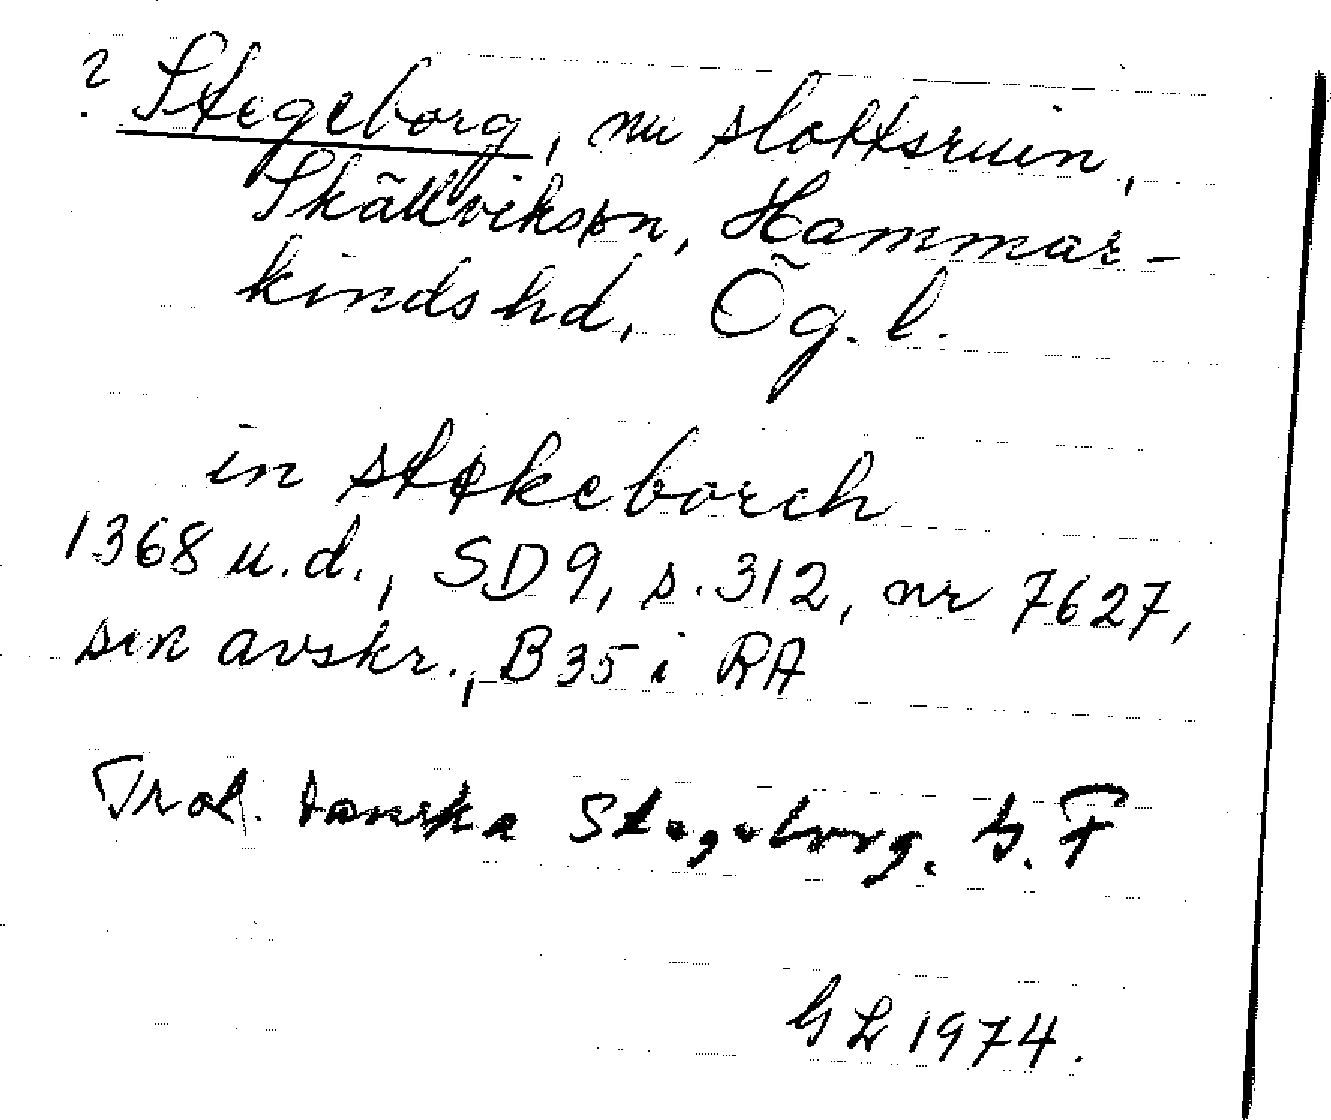 ? Stegeborg, nu slottsruin,
Skällviksn, Hammar-
kinds hd, Ög. l.
in stekeborch
1368 u.d., SD 9, s. 312, nr 7627,
sen avskr., B 35 i RA
Trol. danska Stegeborg. G. F
GL 1974.